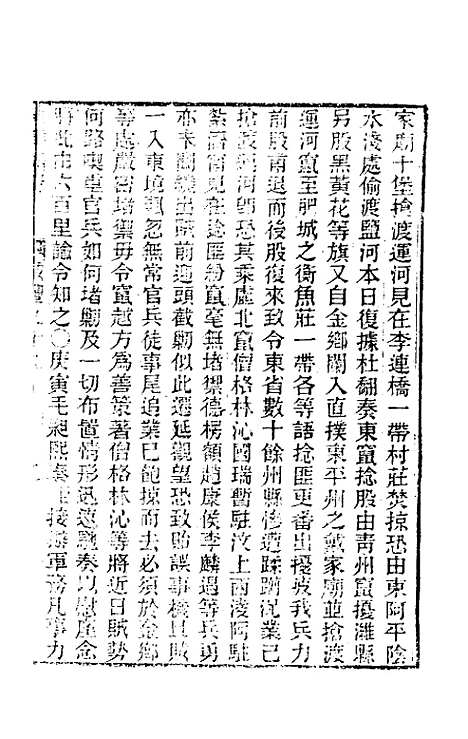 家廟十堡搶渡運河見在李連橋一帶村莊焚掠恐由東阿平陰
水淺處偷渡鹽河本日復據杜翻奏東竄捻股由青州竄擾濰縣
另股黑黃花等旗又自金鄉闌入直撲東平州之戴家廟並搶渡
運河竄至肥城之衡魚莊一帶各等語捻匪更番出擾疲我兵力
前股甫退而後股復來致令東省數十餘州縣慘遭蹂躪況業已
搶渡運河卽恐其乘虛北竄僧格林沁國瑞暫駐汶上西淩阿駐
紮濟甯見在捻匪紛竄毫無堵禦德楞額趙康侯李麟遇等兵勇
亦未聞繞出賊前迎頭截勦似此遷延觀望恐致貽誤事機且賊
一入東境飄忽無常官兵徒事尾追業已飽掠而去必須於金鄉
等處嚴密堵禦毋令竄越方爲善策著僧格林沁等將近日賊勢
何路喫重官兵如何堵勦及一切布置情形迅速馳奏以慰廑念
將此由六百里諭令知之〇庚寅毛昶熙奏 接辦軍務凡事力